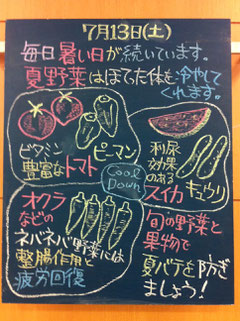 7月13日(土)
毎日暑い日が続いています。
夏野菜はほてた体を冷やして
くれます。
ビタミン
豊富なトマト
ピーマン
利尿
効果
のある
スイカ
キュウリ
Cool
Down
オクラ
などの
ネバネバ野菜には
整腸作用と
疲労回復
旬の野菜と
果物で
夏バテを防ぎ
ましょう!